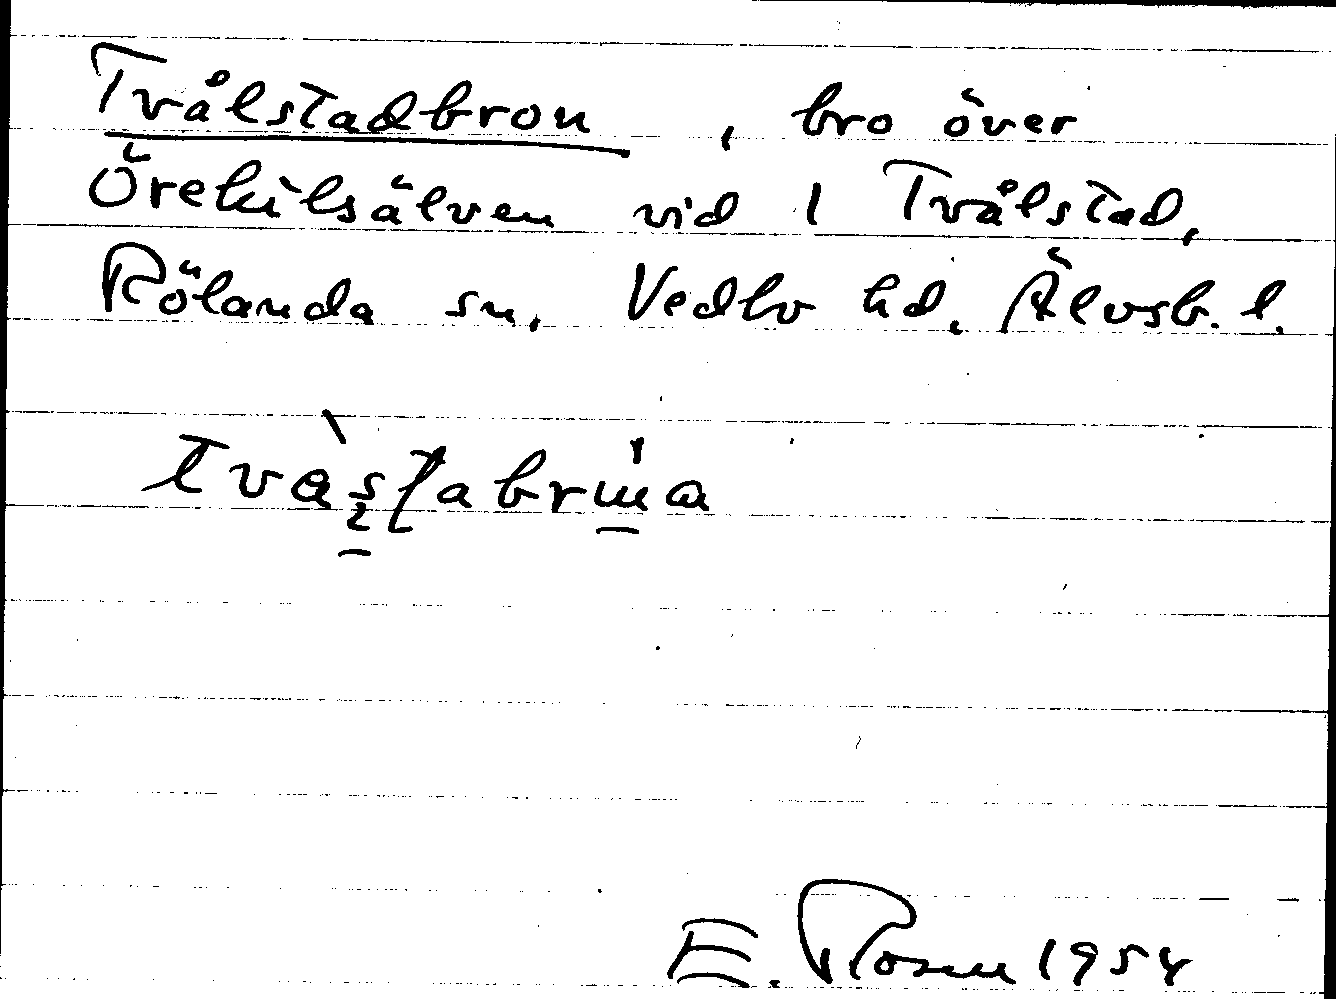 Tvålstadbron , bro över
Örekilsälven vid 1 Tvålstad,
Rölanda sn, Vedbo hd. Älvsb. l.
E. Rosen 1954